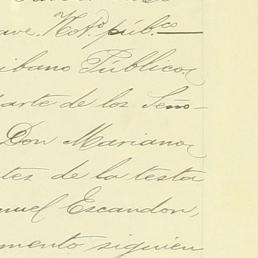 ave. Not.º públ.co
ibano Público
parte de los Seño-
Don Mariano
tes de la testa
nuel Escandon,
mento siguien